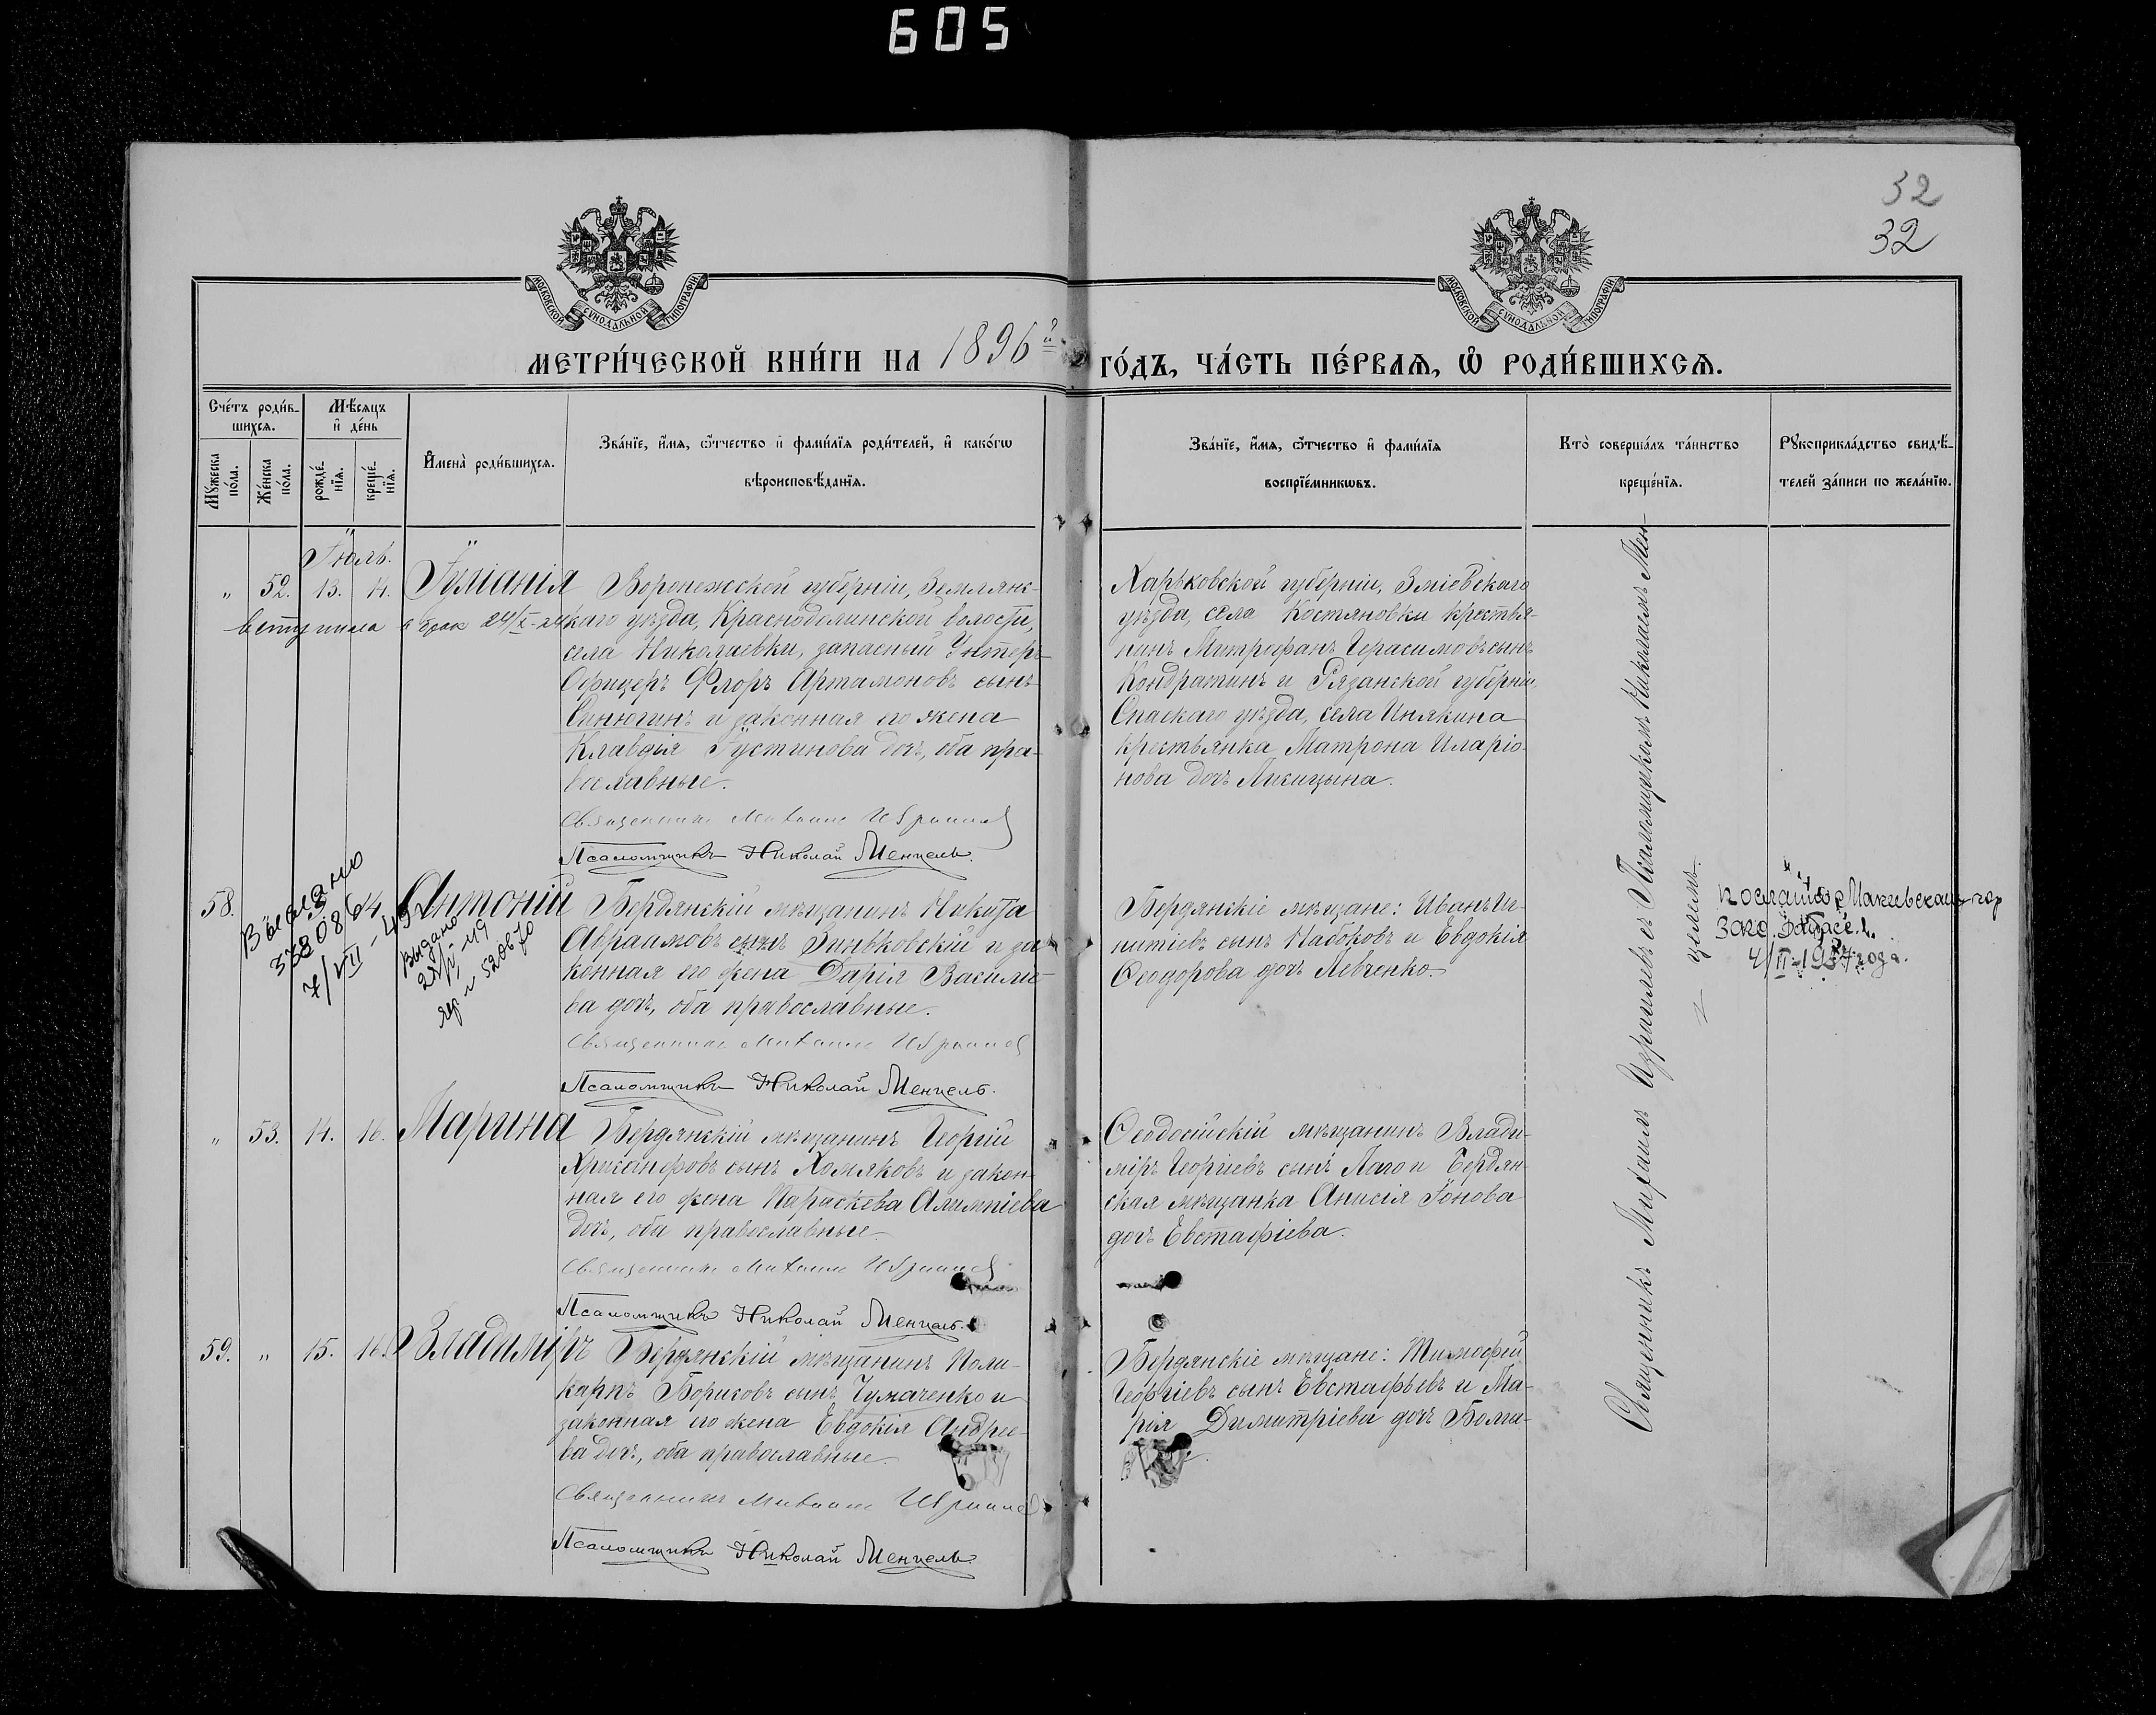 605
32
32
МОСКОВСКОЙ СУНОДАЛЬНОЙ ТИПОГРАФІИ
МОСКОВСКОЙ СУНОДАЛЬНОЙ ТИПОГРАФІИ
МЕТРИ́ЧЕСКОЙ КНИ́ГИ НА 1896й ГО́ДЪ, ЧА́СТЬ ПЕ́РВАѦ, Ѡ РОДИ́ВШИХСѦ.
Сче́тъ роди́в-
шихсѧ.
Мꙋ́жеска
по́ла.
Же́нска
по́ла.
Мѣ́сѧцъ
и҆ де́нь
рожде́-
нїѧ.
креще́-
нїѧ.
И҆мена̀ роди́вшихсѧ.
Зва́нїе, и҆́мѧ, ѻ҆́тчество и҆ фами́лїѧ роди́телей, и҆ како́гѡ
вѣроисповѣ́данїѧ.
Зва́нїе, и҆́мѧ, ѻ҆́тчество и҆ фами́лїѧ
воспрїе́мникѡвъ.
Кто̀ соверша́лъ та́инство
креще́нїѧ.
Рꙋкоприкла́дство свидѣ́-
телей за́писи по жела́нїю.
Іюль.
„ 52. 13. 14. Іуліанія
Воронежской губерніи, Землянс-
каго уѣзда, Краснодолинской волости,
села Николаевки, запасный Унтеръ-
Офицеръ Флоръ Артамоновъ сынъ
Синюгинъ и законная его жена
Клавдія Іустинова дочь, оба пра-
вославные.
Священникъ Михаилъ
Псаломщикъ Николай Менцель.
вступила в брак 24/X-24
Харьковской губерніи, Зміевскаго
уѣзда, села Костяновки крестья-
нинъ Митрофанъ Герасимовъ сынъ
Кондратинъ и Рязанской губерніи,
Спаскаго уѣзда, села Инякина
крестьянка Матрона Иларіо-
нова дочь Ликицына.
58. 14. Антоній
Выдано
7/VII-49
Выдано
520670
Бердянскій мѣщанинъ Никита
Авраамовъ сынъ Зиньковскій и за-
конная его жена Дарія Василье-
ва дочь, оба православные.
Священникъ Михаилъ
Псаломщикъ Николай Менцель.
Бердянскіе мѣщане: Иванъ Иг-
натіевъ сынъ Набоковъ и Евдокія
Ѳеодорова дочь Левченко.
Макиевский гор
Загс.
„ 53. 14. 16. Марина
Бердянскій мѣщанинъ Георгій
Хрисанфовъ сынъ Хомяковъ и закон-
ная его жена Параскева Алимпіева
дочь, оба православные.
Священникъ Михаилъ
Псаломщикъ Николай Менцель.
Ѳеодосійскій мѣщанинъ Влади-
міръ Георгіевъ сынъ Лаго и Бердян-
ская мѣщанка Анисія Іонова
дочь Евстафіева.
59. „ 15. 16. Владиміръ
Бердянскій мѣщанинъ Поли-
карпъ Борисовъ сынъ Чумаченко и
законная его жена Евдокія Андрее-
ва дочь, оба православные.
Священникъ Михаилъ
Псаломщикъ Николай Менцель.
Бердянскіе мѣщане: Тимофей
Георгіевъ сынъ Евстафьевъ и Ма-
рія Димитріева дочь
Священникъ Михаилъ съ Псаломщикомъ Николаемъ Мен-
целемъ.